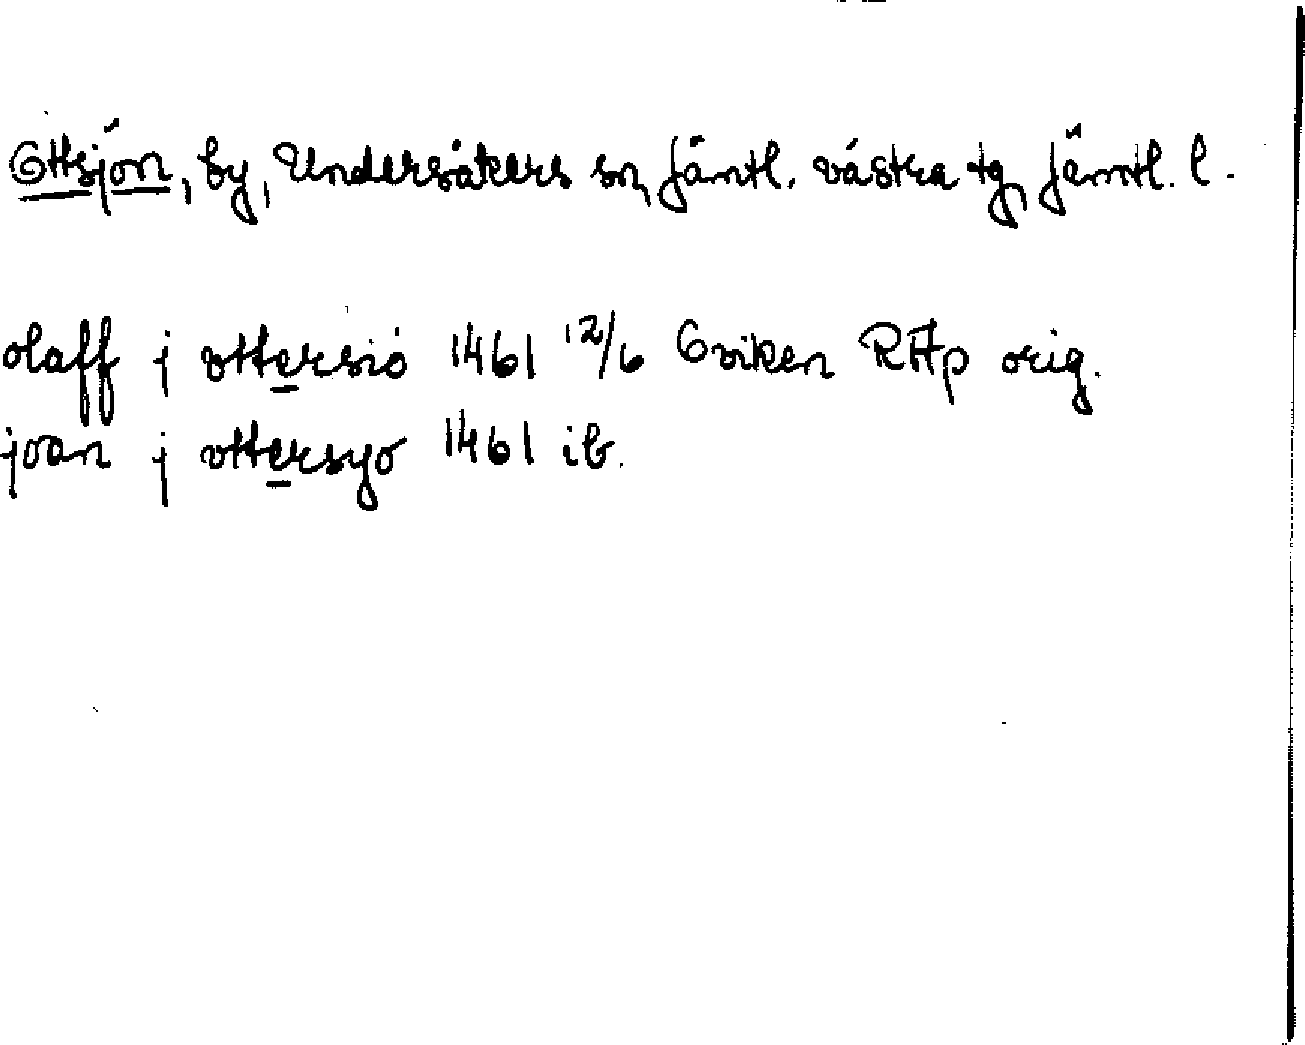 Ottsjön, by, Undersåkers sn, Jämtl. västra tg, Jämtl. l.
olaff j ottersiö 1461 12/6 Oviken RAp orig.
joan j ottersyo 1461 ib.